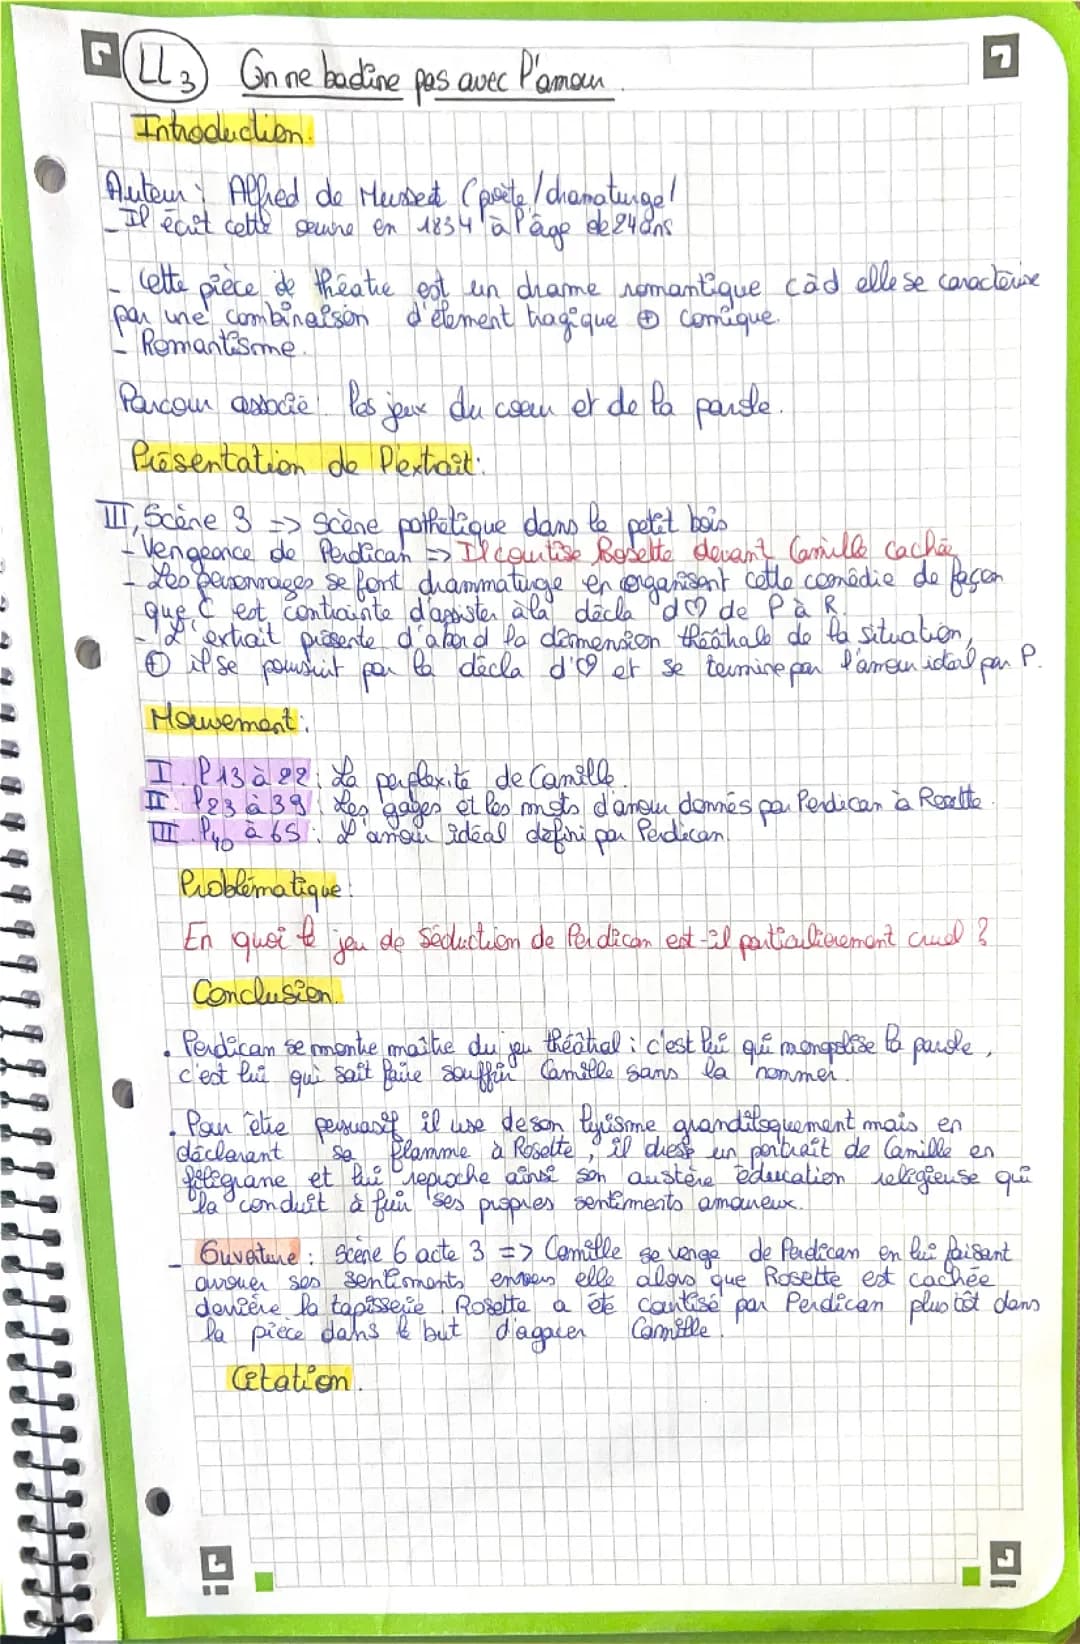 LL3 On ne badine pas avec l'amour.
Introduction.
Auteur : Alfred de Musset (poète/dramaturge)
- Il écrit cette œuvre en 1834 à l'âge de 24 ans
- Cette pièce de théatre est un drame romantique càd elle se caractérise
par une combinaison d'élement tragique ⊕ comique.
- Romantisme.
Parcour associé : les jeux du coeur et de la parole.
Présentation de l'extrait :
III, Scène 3 => Scène pathétique dans le petit bois
- Vengeance de Perdican => Il courtise Rosette devant Camille cachée
- Les personnages se font drammaturge en organisant cette comédie de façon
que C est contrainte d'assister à la décla d♡ de P à R.
- L'extrait présente d'abord la dimension théâtrale de la situation,
⊕ il se poursuit par la décla d'♡ et se termine par l'amour idéal par P.
Mouvement :
I. l13 à 22 : La perplexité de Camille.
II. l23 à 39 : Les gages et les mots d'amour donnés par Perdican à Rosette.
III. l40 à 65 : L'amour idéal défini par Perdican.
Problématique :
En quoi le jeu de séduction de Perdican est-il particulièrement cruel ?
Conclusion.
. Perdican se montre maître du jeu théâtral : c'est lui qui monopolise la parole,
c'est lui qui sait faire souffrir Camille sans la nommer.
. Pour être persuasif il use de son lyrisme grandiloquement mais en
déclarant sa flamme à Rosette, il dresse un portrait de Camille en
filigrane et lui reproche ainsi son austère éducation religieuse qui
la conduit à fuir ses propres sentiments amoureux.
- Ouverture : Scène 6 acte 3 => Camille se venge de Perdican en lui faisant
avouer ses sentiments envers elle alors que Rosette est cachée
derrière la tapisserie. Rosette a été courtisé par Perdican plus tôt dans
la pièce dans le but d'agacer Camille.
Citation.